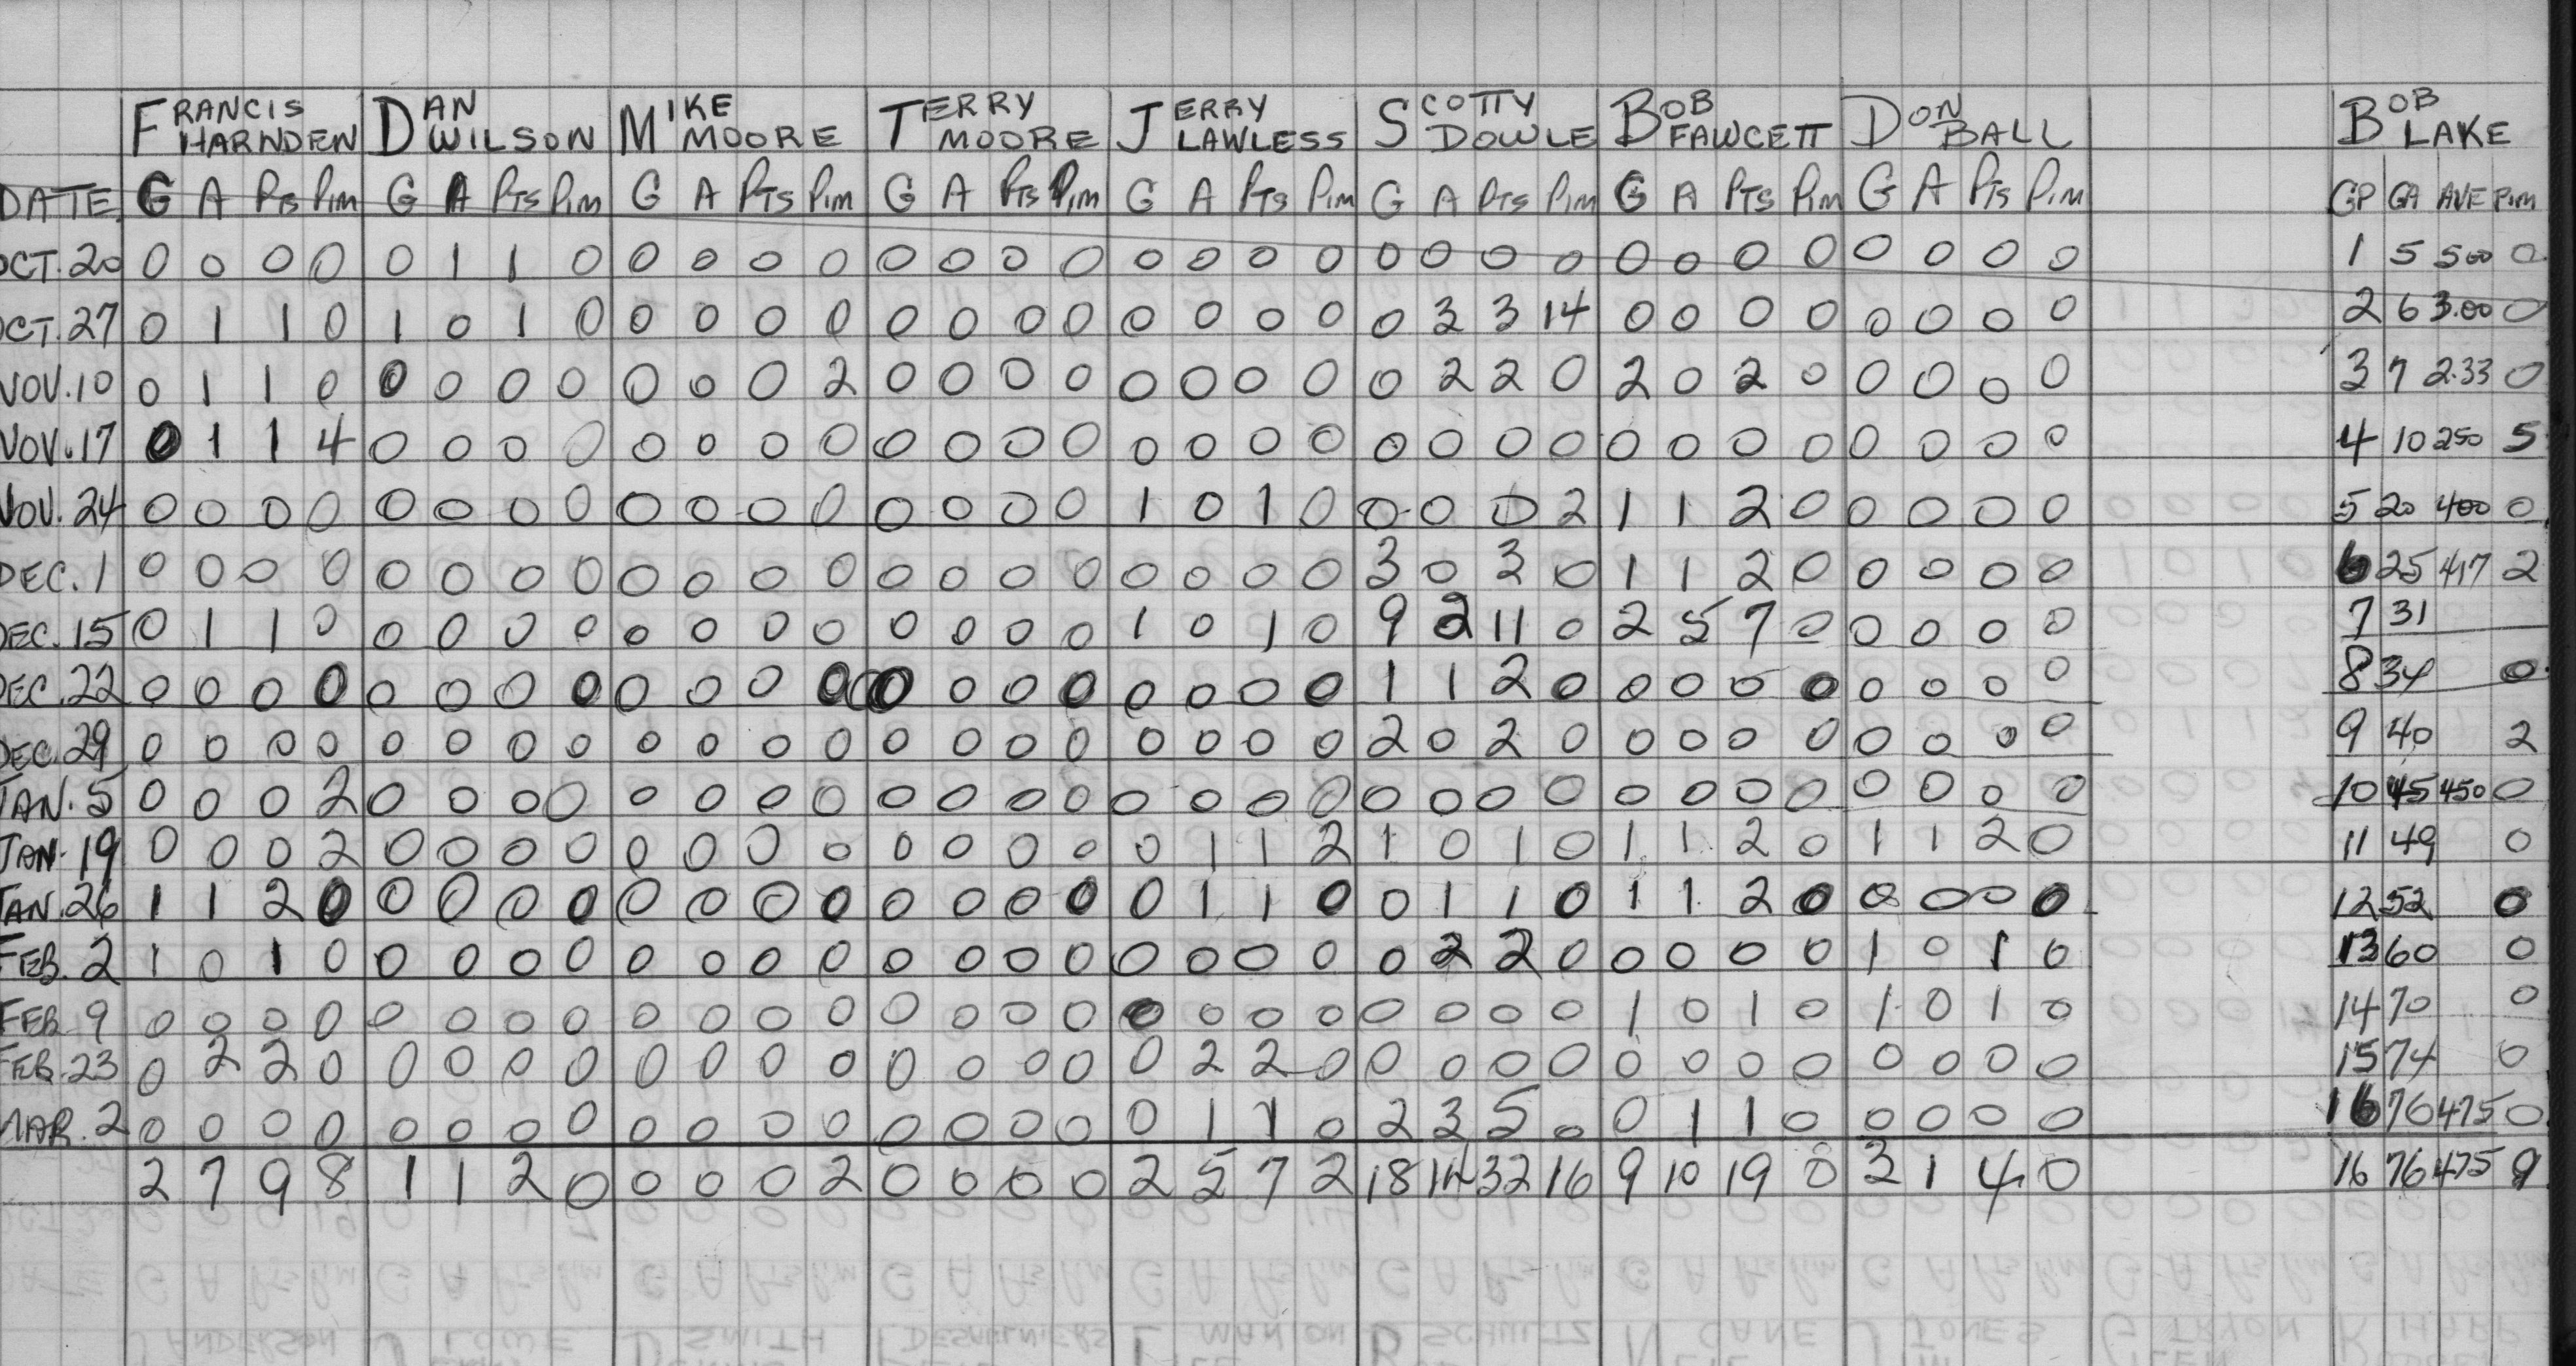 FRANCIS HARNDEN DAN WILSON MIKE MOORE TERRY MOORE JERRY LAWLESS SCOTTY DOWLE BOB FAWCETT DON BALL BOB LAKE
DATE G A Pts Pim G A Pts Pim G A Pts Pim G A Pts Pim G A Pts Pim G A Pts Pim G A Pts Pim G A Pts Pim GP GA AVE Pim
OCT. 20 0 0 0 0 0 1 1 0 0 0 0 0 0 0 0 0 0 0 0 0 0 0 0 0 0 0 0 0 0 0 0 0 1 5 500 0
OCT. 27 0 1 1 0 1 0 1 0 0 0 0 0 0 0 0 0 0 0 0 0 0 3 3 14 0 0 0 0 0 0 0 0 2 6 3.00 0
NOV. 10 0 1 1 0 0 0 0 0 0 0 0 2 0 0 0 0 0 0 0 0 0 2 2 0 2 0 2 0 0 0 0 0 3 7 2.33 0
NOV. 17 0 1 1 4 0 0 0 0 0 0 0 0 0 0 0 0 0 0 0 0 0 0 0 0 0 0 0 0 0 0 0 0 4 10 250 5
NOV. 24 0 0 0 0 0 0 0 0 0 0 0 0 0 0 0 0 1 0 1 0 0 0 0 2 1 1 2 0 0 0 0 0 5 20 400 0
DEC. 1 0 0 0 0 0 0 0 0 0 0 0 0 0 0 0 0 0 0 0 0 3 0 3 0 1 1 2 0 0 0 0 0 6 25 417 2
DEC. 15 0 1 1 0 0 0 0 0 0 0 0 0 0 0 0 0 1 0 1 0 9 2 11 0 2 5 7 0 0 0 0 0 7 31
DEC. 22 0 0 0 0 0 0 0 0 0 0 0 0 0 0 0 0 0 0 0 0 1 1 2 0 0 0 0 0 0 0 0 0 8 34 0
DEC. 29 0 0 0 0 0 0 0 0 0 0 0 0 0 0 0 0 0 0 0 0 2 0 2 0 0 0 0 0 0 0 0 0 9 40 2
JAN. 5 0 0 0 2 0 0 0 0 0 0 0 0 0 0 0 0 0 0 0 0 0 0 0 0 0 0 0 0 0 0 0 0 10 45 450 0
JAN. 19 0 0 0 2 0 0 0 0 0 0 0 0 0 0 0 0 0 1 1 2 1 0 1 0 1 1 2 0 1 1 2 0 11 49 0
JAN. 26 1 1 2 0 0 0 0 0 0 0 0 0 0 0 0 0 0 1 1 0 0 1 1 0 1 1 2 0 0 0 0 0 12 52 0
FEB. 2 1 0 1 0 0 0 0 0 0 0 0 0 0 0 0 0 0 0 0 0 0 2 2 0 0 0 0 0 1 0 1 0 13 60 0
FEB. 9 0 0 0 0 0 0 0 0 0 0 0 0 0 0 0 0 0 0 0 0 0 0 0 0 1 0 1 0 1 0 1 0 14 70 0
FEB. 23 0 2 2 0 0 0 0 0 0 0 0 0 0 0 0 0 0 2 2 0 0 0 0 0 0 0 0 0 0 0 0 0 15 74 0
MAR. 2 0 0 0 0 0 0 0 0 0 0 0 0 0 0 0 0 0 1 1 0 2 3 5 0 0 1 1 0 0 0 0 0 16 76 475 0
2 7 9 8 1 1 2 0 0 0 0 2 0 0 0 0 2 5 7 2 18 14 32 16 9 10 19 0 3 1 4 0 16 76 475 9